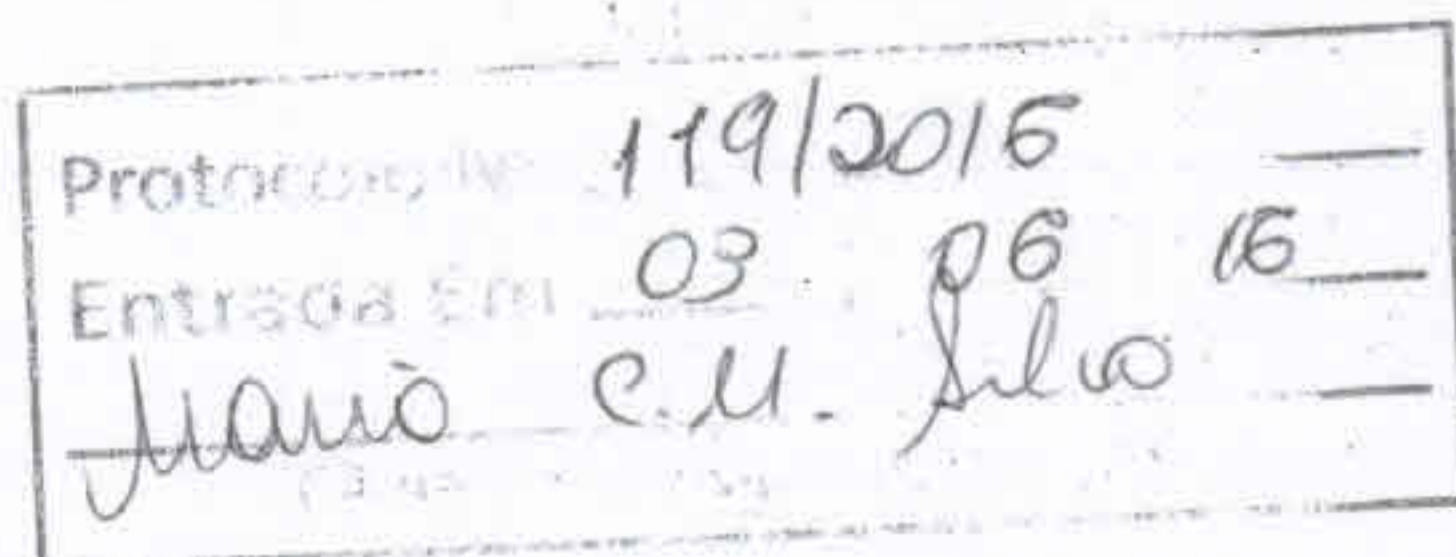 Protocolo Nº 119/2016
Entrada Em 03 06 16
Maria C.M. Silva